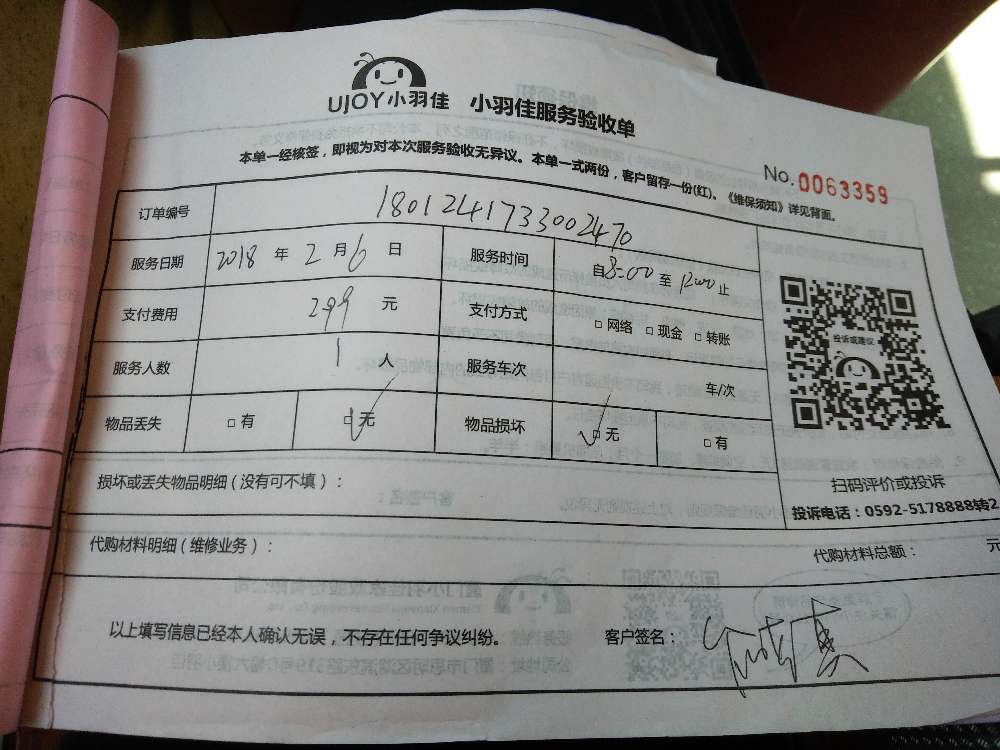 UJOY小羽佳 小羽佳服务验收单
本单一经核签，即视为对本次服务验收无异议。本单一式两份，客户留存一份(红)。《维保须知》详见背面。
No. 0063359
订单编号 1801241733002470
服务日期 2018 年 2 月 6 日 服务时间 自8:00 至 12:00 止
支付费用 299 元 支付方式 □ 网络 □ 现金 □ 转账
服务人数 1 人 服务车次 车/次
物品丢失 □ 有 □ 无 物品损坏 □ 无 □ 有
投诉或建议
扫码评价或投诉
投诉电话：0592-5178888转2
损坏或丢失物品明细（没有可不填）：
代购材料明细（维修业务）： 代购材料总额： 元
以上填写信息已经本人确认无误，不存在任何争议纠纷。 客户签名：